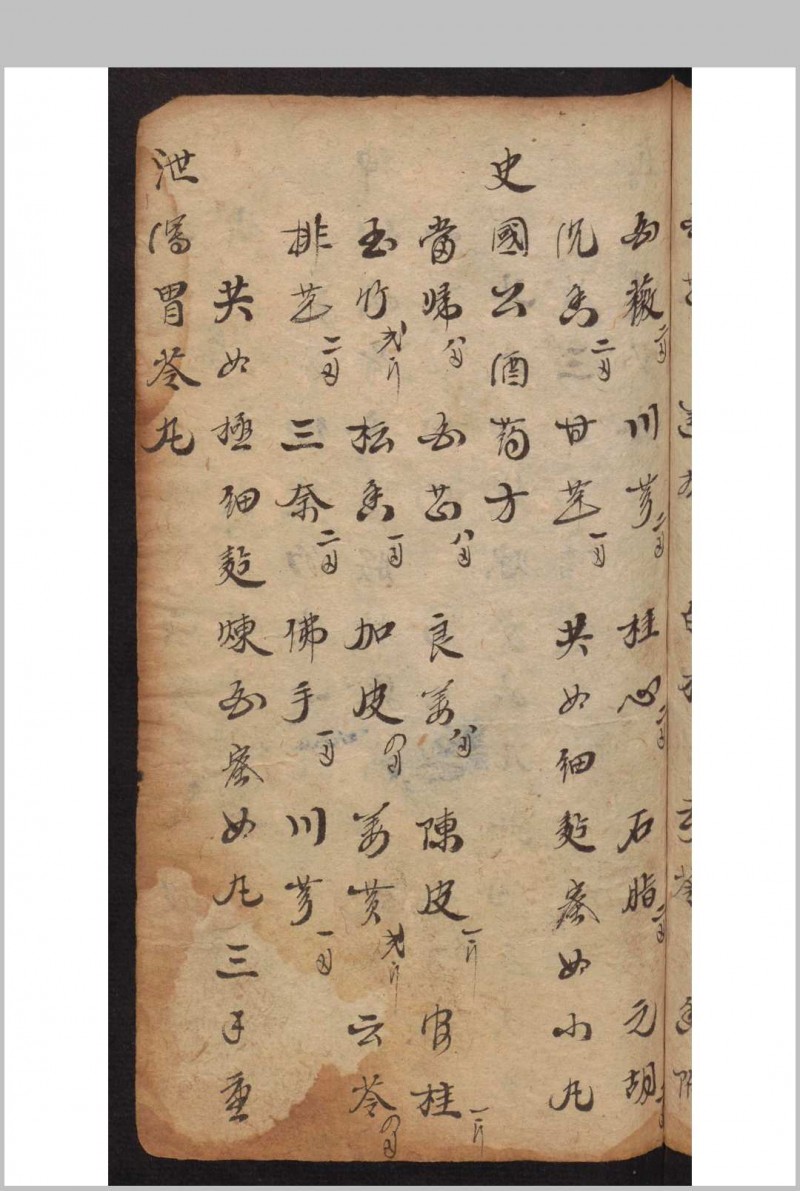 白薇二钱 川芎二钱 桂心二钱 石脂二钱 元胡
沉香二钱 甘草一钱 共为细麪蜜为小丸
史國公酒药方
當归八钱 白芷八钱 良姜八钱 陳皮一斤 官桂一斤
玉竹弍斤 松香一钱 加皮四钱 姜黄弍斤 云苓四钱
排草二钱 三奈二钱 佛手一钱 川芎一钱
共为極细麪煉白蜜为丸三钱重
泄瀉胃苓丸